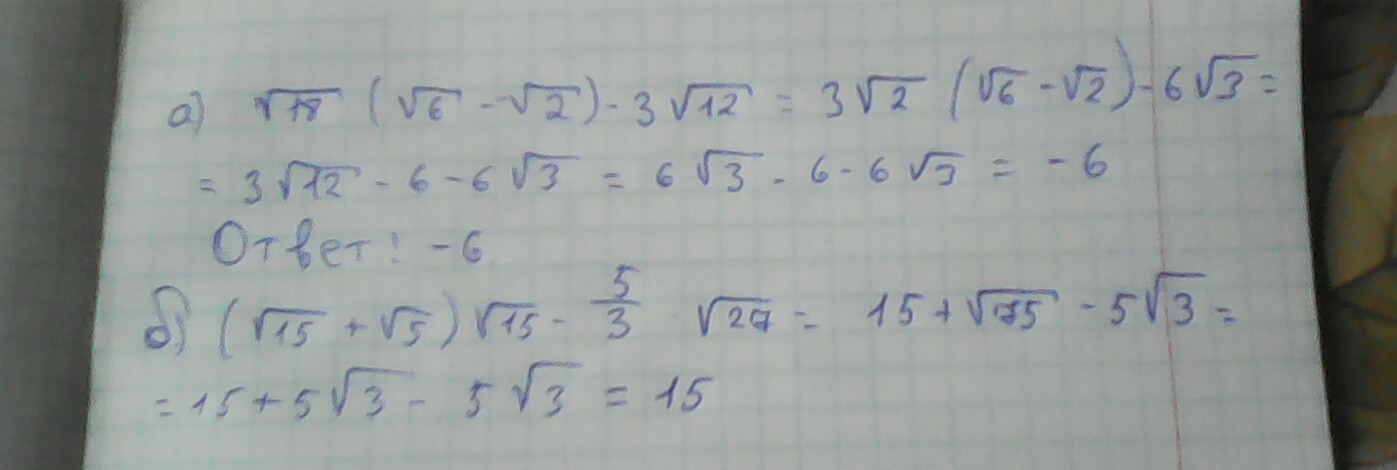 а) √18 (√6 - √2) - 3√12 = 3√2 (√6 - √2) - 6√3 =
= 3√12 - 6 - 6√3 = 6√3 - 6 - 6√3 = -6
Ответ: -6
б) (√15 + √5)√15 - 5/3 √27 = 15 + √75 - 5√3 =
= 15 + 5√3 - 5√3 = 15